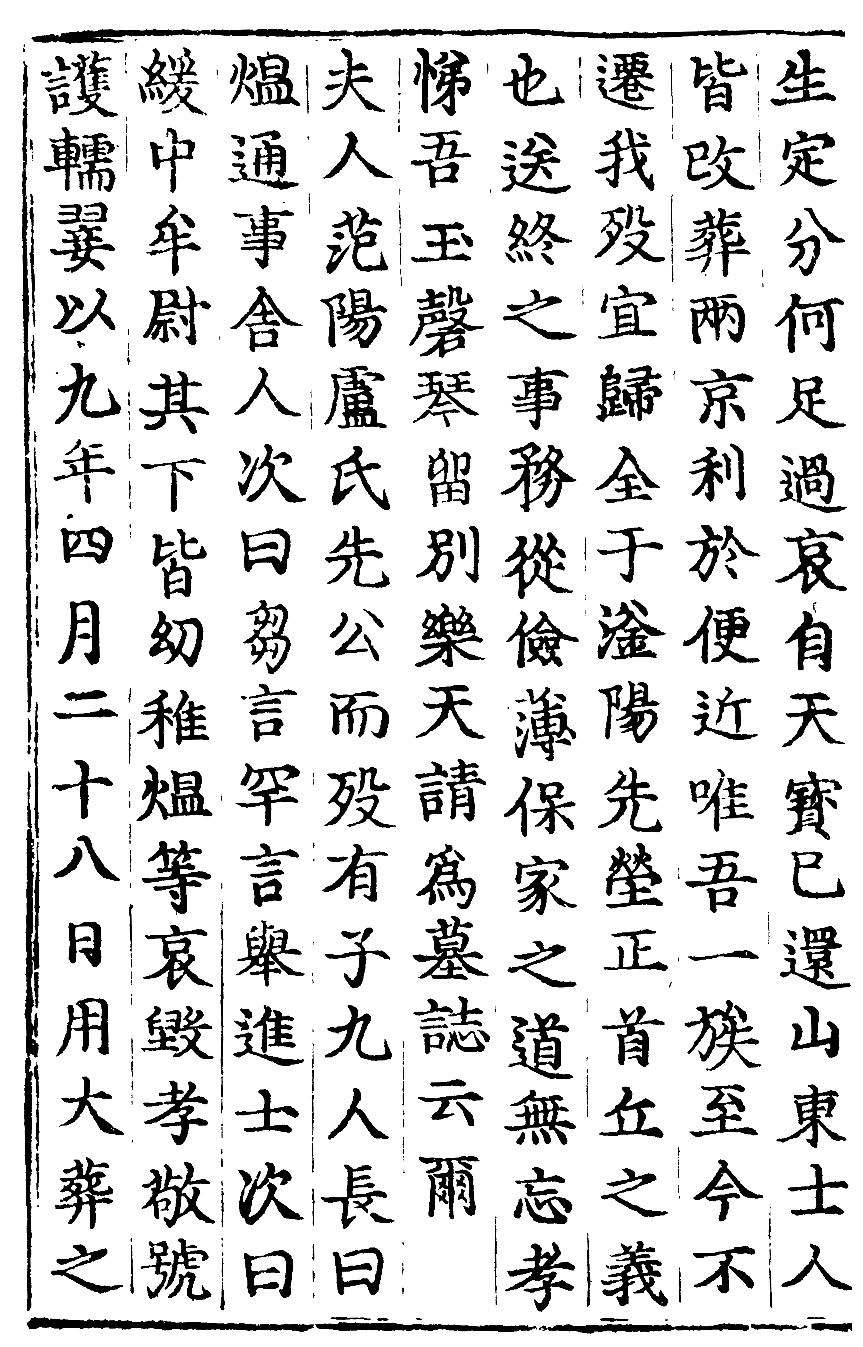 生定分何足過哀自天寶已還山東士人
皆改葬兩京利於便近唯吾一族至今不
遷我歿宜歸全于滏陽先塋正首丘之義
也送終之事務從儉薄保家之道無忘孝
悌吾玉磬琴留別樂天請爲墓誌云爾
夫人范陽盧氏先公而歿有子九人長曰
煴通事舍人次曰芻言罕言舉進士次曰
緩中牟尉其下皆幼稚煴等哀毀孝敬號
護轜翣以九年四月二十八日用大葬之